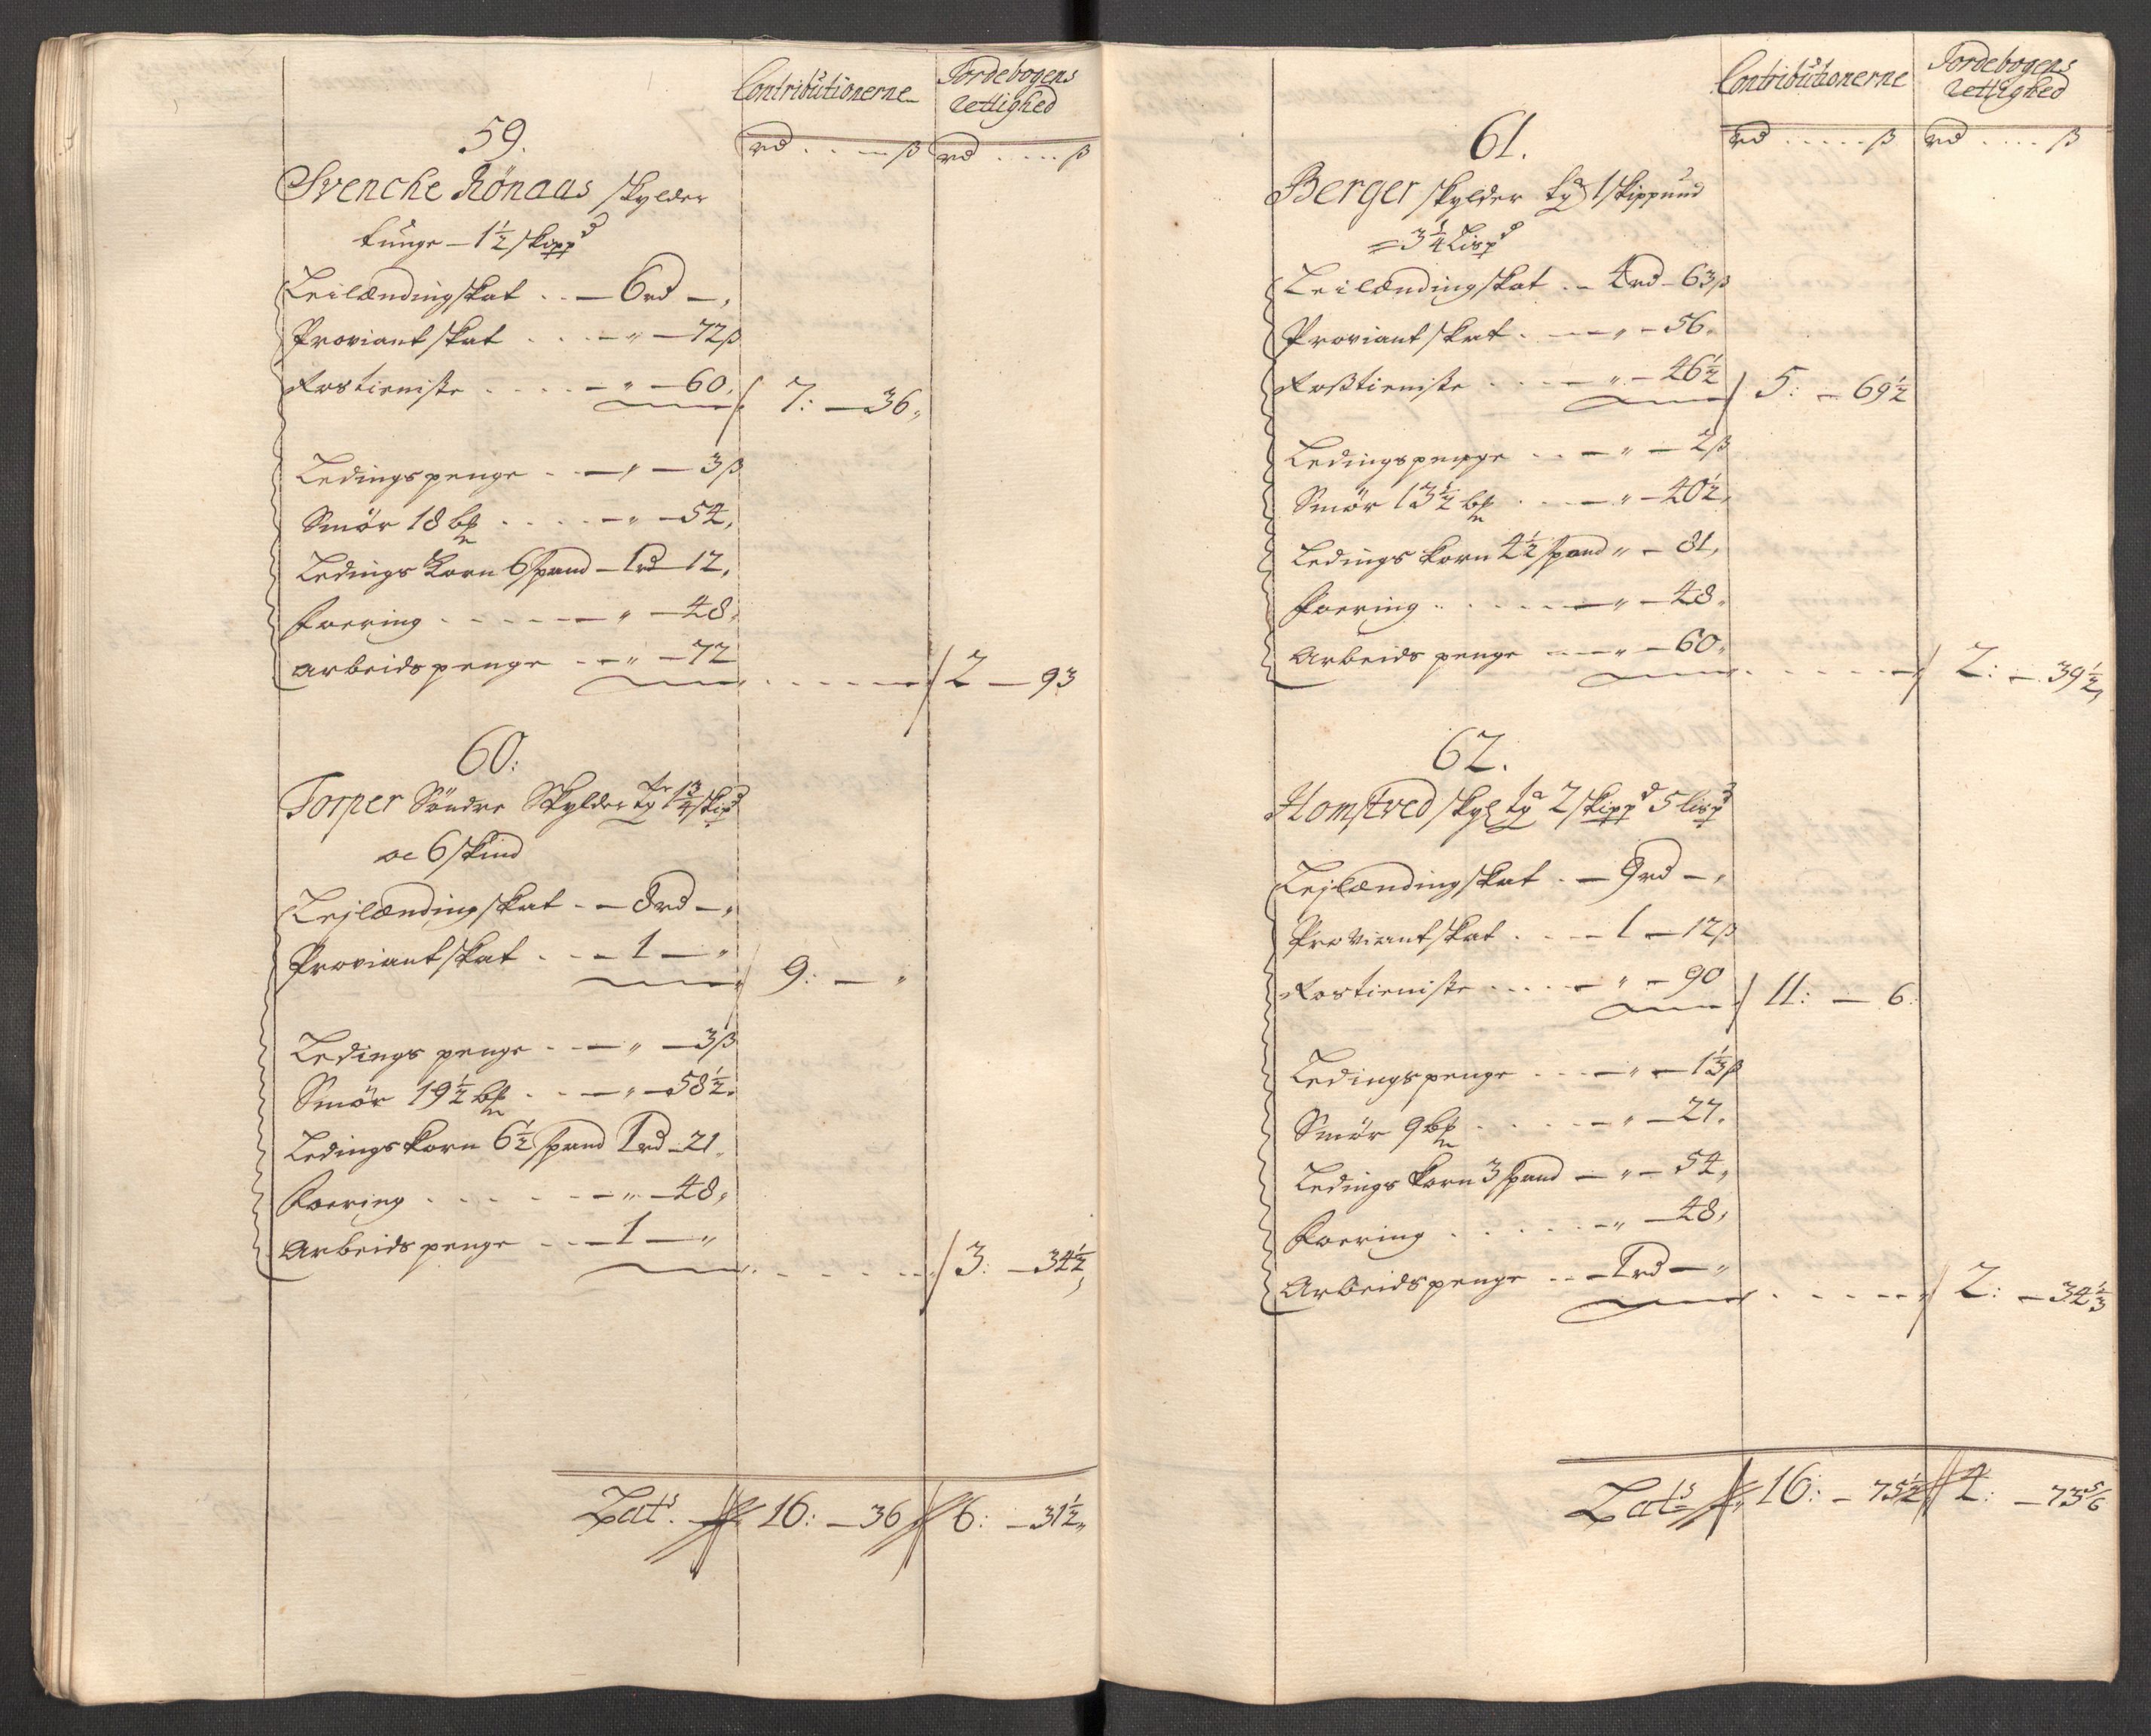 Contributionerne Jordebogens
Rettighed
rd . . — ß rd . . . . ß
59.
Svenche Rönaas skylder
tunge — 1½ skippd
Leilændingskat . . — 6 rd — „
Proviantskat . . . — „ — 72 ß
Rostieniste . . . . — „ — 60. 7: — 36„
Ledingspenge . . — „ — 3 ß
Smör 18 bp . . . . — „ — 54,
Ledings Korn 6 spand — 1 rd — 12,
Foering . . . . . — „ — 48„
Arbeidspenge . . — „ — 72 2 — 93
60:
Torper Söndre Skylder 1¾ skipd
oc 6 skind
Lejlændingskat . . — 8 rd — „
Proviantskat . . . — 1 — „ 9: — „
Ledings penge . . — „ — 3 ß
Smör 19½ bp . . — „ — 58½.
Ledingskorn 6½ spand 1 rd — 21„
Foering . . . . — „ — 48„
Arbeidspenge . . . — 1 — „ 3: — 34½
Lats. 16: — 36 6: — 31½„
Contributionerne Jordebogens
Rettighed
rd . . . . . ß rd . . . . ß
61.
Berger skylder tya 1 skippund
= 3¼ Lispd
Leilændingskat . — 4 rd — 63 ß
Proviantskat . — „ — 56.
Rosstieniste . . . — „ — 46½ 5: — 69½
Ledingspenge . . — „ — 2 ß
Smör 13½ bp . . — „ — 40½,
Ledings korn 4½ spand „ — 81,
Foering . . . . . — „ — 48„
Arbeids penge . . — „ — 60„ 2: — 39½„
62.
Homstved skyl tya 2 skippd 5 lispd
Lejlændingskat . — 9 rd — „
Proviantskat . . — 1 — 12 ß
Rostieniste . . . . — „ — 90 11: — 6:
Ledingspenge . . . — „ — 1⅓ ß
Smör 9 bp . . . . — „ — 27.
Ledings korn 3 spand — „ — 54„
Foering . . . . . — „ — 48,
Arbeidspenge . . — 1 rd — „ 2: — 34⅓
Lats 16: — 75½ 4: — 73⅚